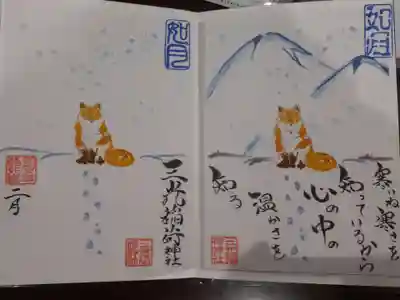 如月
寒いね寒さを
知っているから
心の中の
温かさを
知る
如月
三光稲荷神社
二月